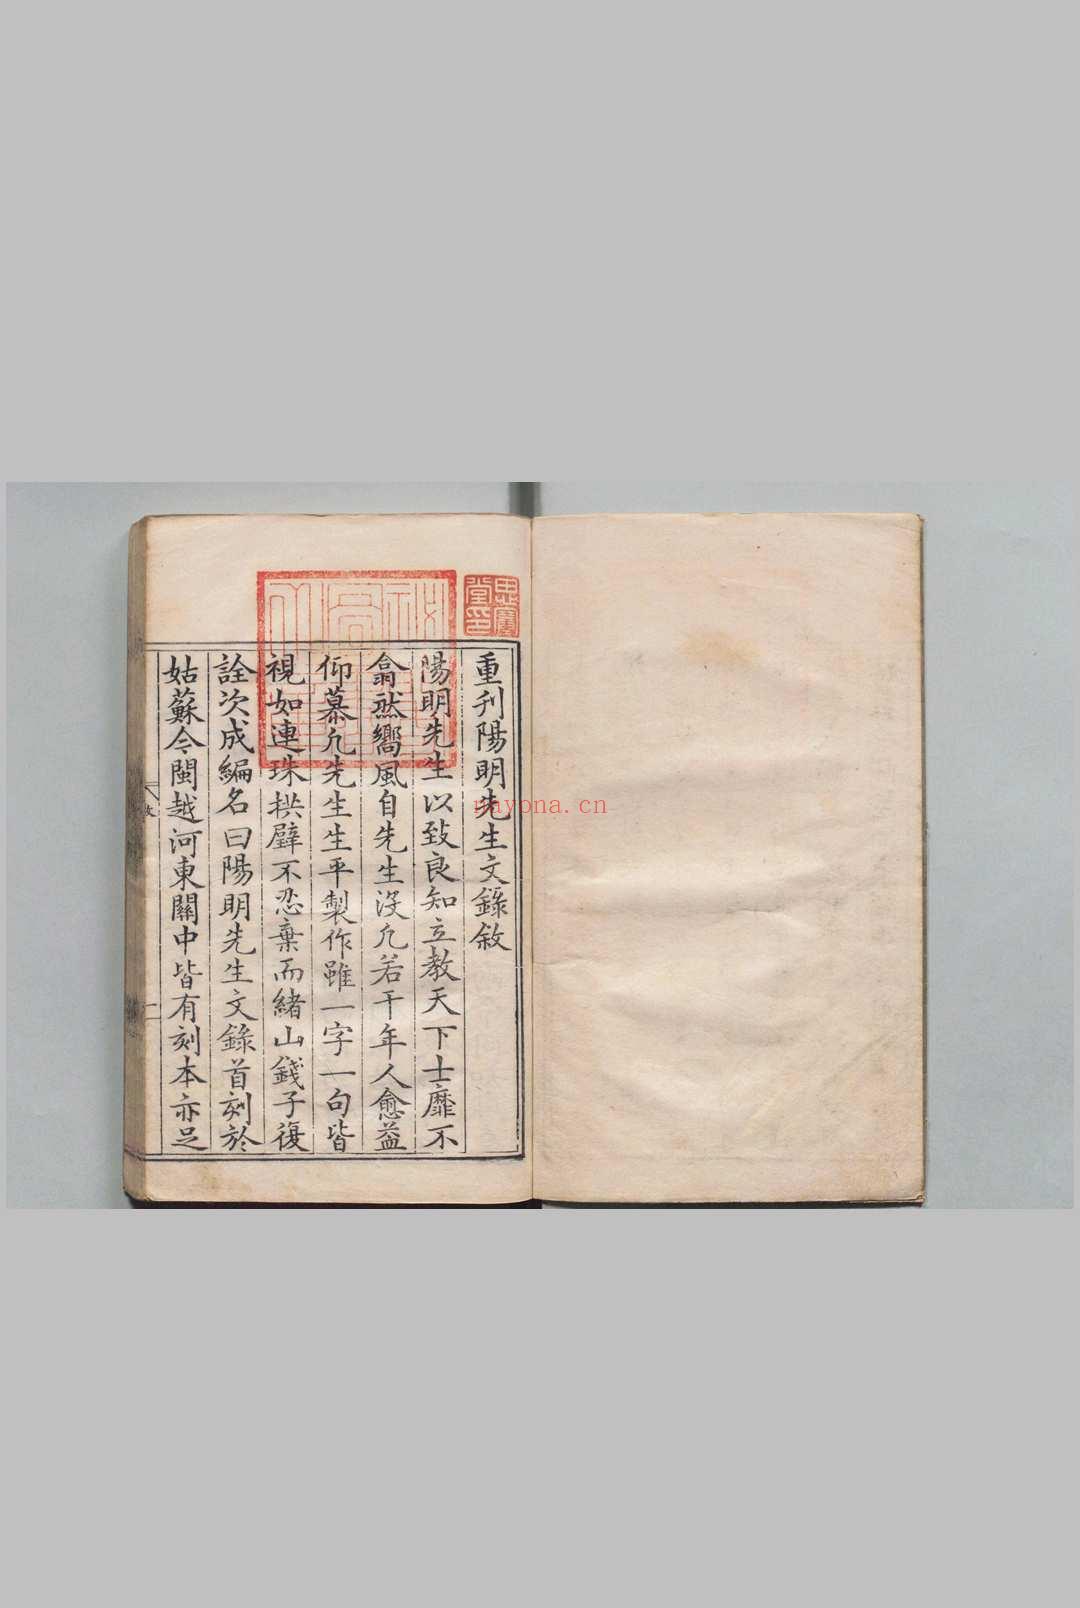 重刋陽明先生文錄敘
陽明先生以致良知立教天下士靡不
翕然嚮風自先生沒凢若干年人愈益
仰慕凢先生生平製作雖一字一句皆
視如連珠拱璧不忍棄而緒山錢子復
詮次成編名曰陽明先生文錄首刻於
姑蘇今閩越河東關中皆有刻本亦足
nayona.cn